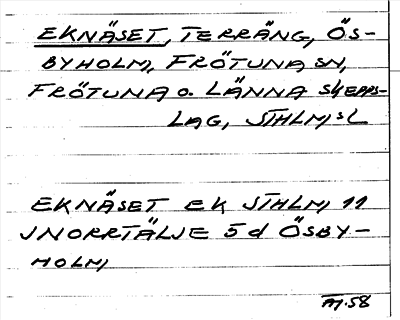 EKNÄSET, TERRÄNG, ÖS-
BYHOLM, FRÖTUNA SN,
FRÖTUNA o. LÄNNA SKEPPS-
LAG, STHLM:S L
EKNÄSET EK STHLM 11
JNORRTÄLJE 5d ÖSBY-
HOLM,